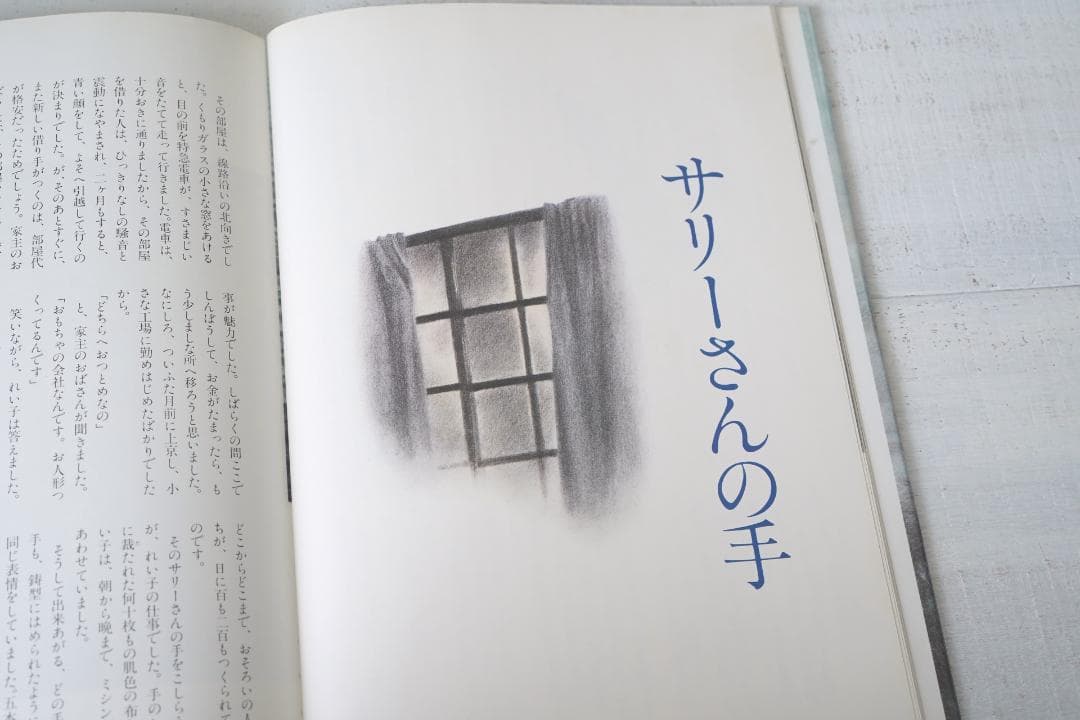 サリーさんの手
その部屋は、線路沿いの北向きでし
た。くもりガラスの小さな窓をあける
と、目の前を特急電車が、すさまじい
音をたてて走って行きました。電車は、
十分おきに通りましたから、その部屋
を借りた人は、ひっきりなしの騒音と
震動になやまされ、二ヶ月もすると、
青い顔をして、よそへ引越して行くの
が決まりでした。が、そのあとすぐに、
また新しい借り手がつくのは、部屋代
が格安だったためでしょう。家主のお
事が魅力でした。しばらくの間ここで
しんぼうして、お金がたまったら、も
う少しましな所へ移ろうと思いました。
なにしろ、ついふた月前に上京し、小
さな工場に勤めはじめたばかりでした
から。
「どちらへおつとめなの」
と、家主のおばさんが聞きました。
「おもちゃの会社なんです。お人形つ
くってるんです」
笑いながら、れい子は答えました。
どこからどこまで、おそろいの人
ちが、日に百も二百もつくられて
のです。
そのサリーさんの手をこしら
が、れい子の仕事でした。手の
に裁たれた何十枚もの肌色の布
い子は、朝から晩まで、ミシン
あわせていました。
そうして出来あがる、どの手
手も、鋳型にはめられたように
同じ表情をしていました。五本